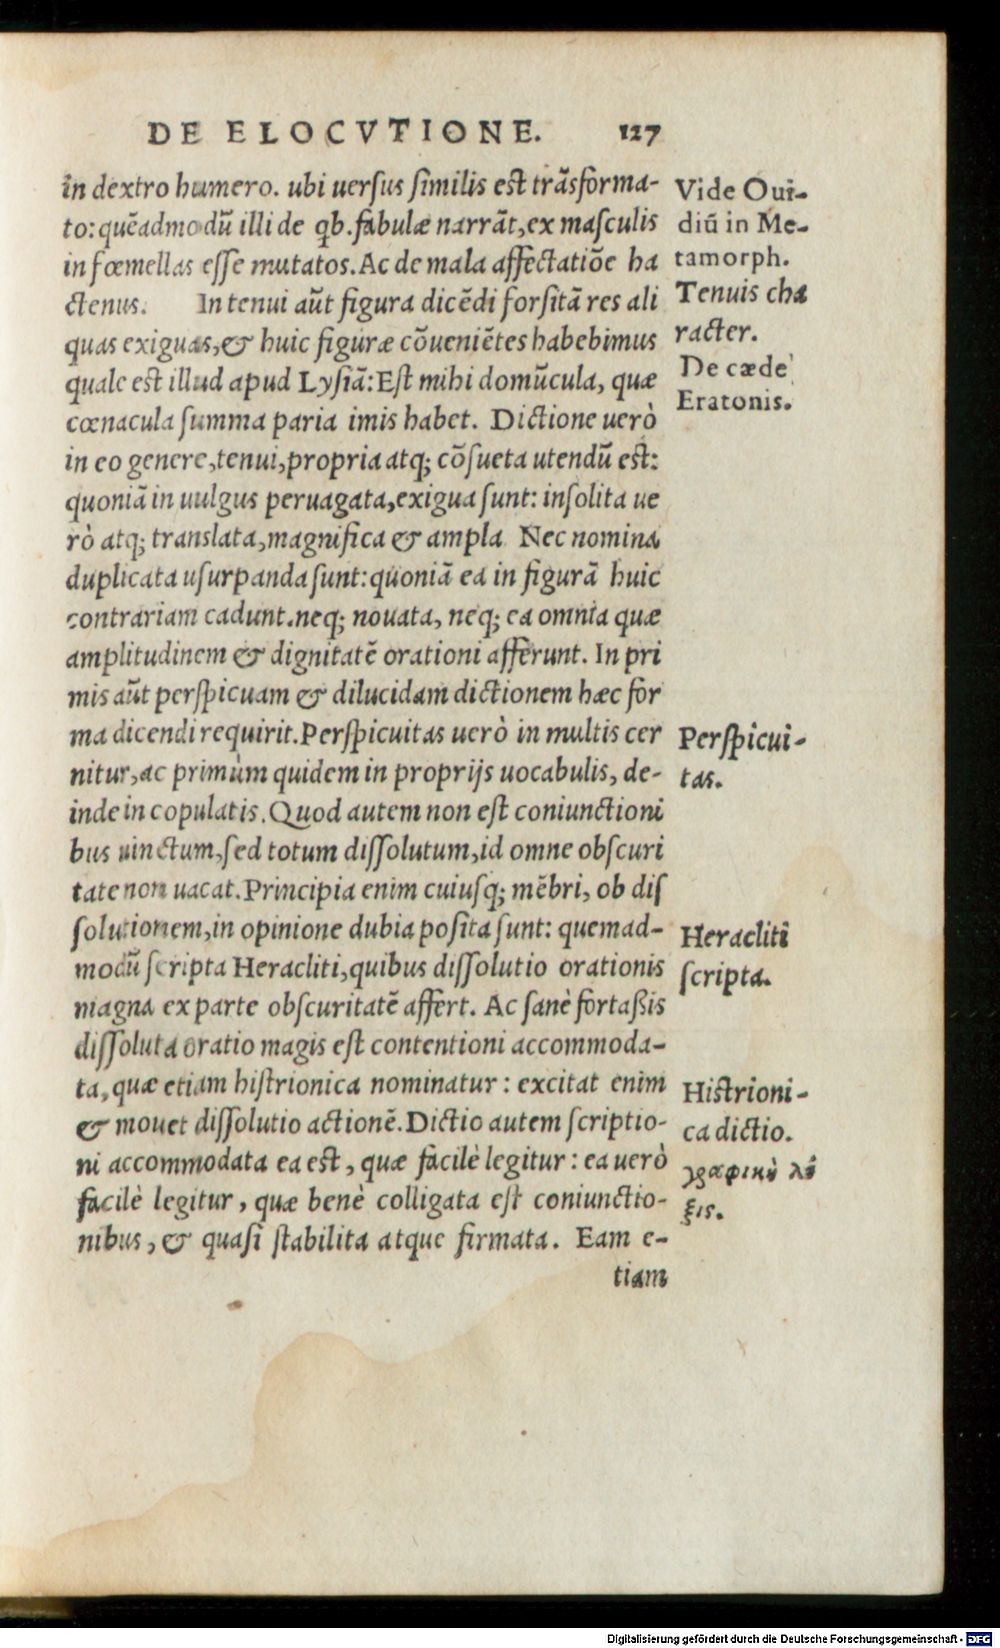 DE ELOCVTIONE. 127
in dextro humero. ubi uersus similis est trāsforma-
to: quēadmodū illi de qb. fabulæ narrāt, ex masculis
in fœmellas esse mutatos. Ac de mala affectatiōe ha
ctenus. In tenui aūt figura dicēdi forsitā res ali
quas exiguas, & huic figuræ cōueniētes habebimus
quale est illud apud Lysiā: Est mihi domūcula, quæ
cœnacula summa paria imis habet. Dictione uerò
in eo genere, tenui, propria atq; cōsueta utendū est:
quoniā in uulgus peruagata, exigua sunt: insolita ue
rò atq; translata, magnifica & ampla Nec nomina
duplicata usurpanda sunt: quoniā ea in figurā huic
contrariam cadunt. neq; nouata, neq; ea omnia quæ
amplitudinem & dignitatē orationi afferunt. In pri
mis aūt perspicuam & dilucidam dictionem hæc for
ma dicendi requirit. Perspicuitas uerò in multis cer
nitur, ac primùm quidem in proprijs uocabulis, de-
inde in copulatis. Quod autem non est coniunctioni
bus uinctum, sed totum dissolutum, id omne obscuri
tate non uacat. Principia enim cuiusq; mēbri, ob dis
solutionem, in opinione dubia posita sunt: quemad-
modū scripta Heracliti, quibus dissolutio orationis
magna ex parte obscuritatē affert. Ac sanè fortaßis
dissoluta oratio magis est contentioni accommoda-
ta, quæ etiam histrionica nominatur: excitat enim
& mouet dissolutio actionē. Dictio autem scriptio-
ni accommodata ea est, quæ facilè legitur: ea uerò
facilè legitur, quæ benè colligata est coniunctio-
nibus, & quasi stabilita atque firmata. Eam e-
tiam
Vide Oui-
diū in Me-
tamorph.
Tenuis cha
racter.
De cæde
Eratonis.
Perspicui-
tas.
Heracliti
scripta.
Histrioni-
ca dictio.
γραφικὴ λέ
ξις.
Digitalisierung gefördert durch die Deutsche Forschungsgemeinschaft - DFG